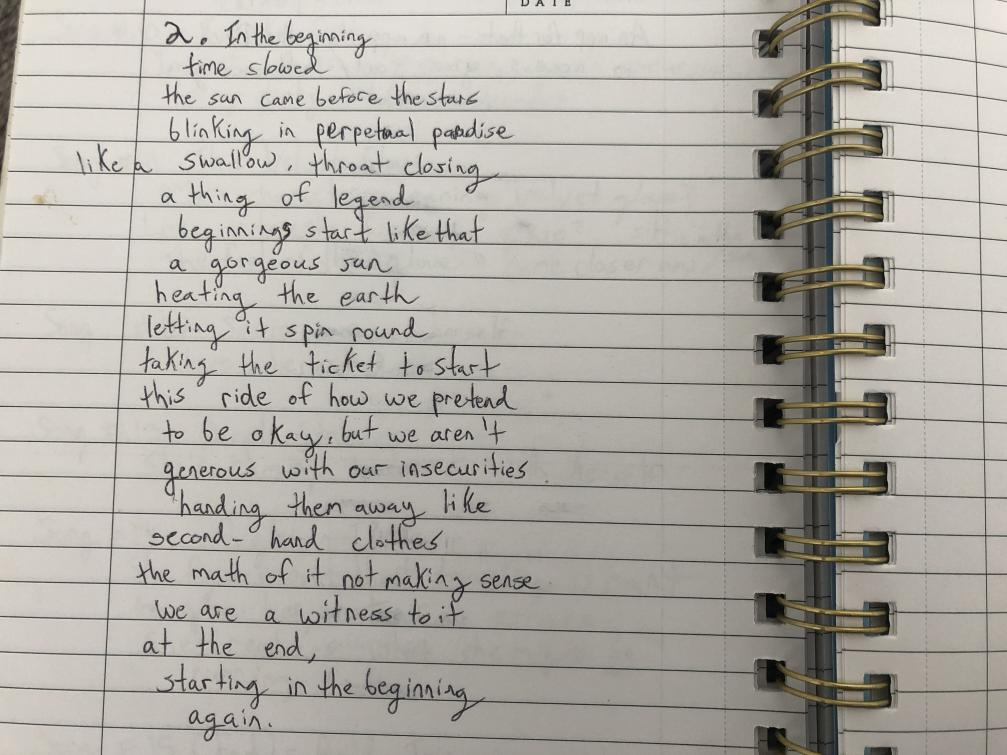 DATE
2. In the beginning
time slowed
the sun came before the stars
blinking in perpetual paradise
like a swallow, throat closing
a thing of legend
beginnings start like that
a gorgeous sun
heating the earth
letting it spin round
taking the ticket to start
this ride of how we pretend
to be okay, but we aren't
generous with our insecurities
handing them away like
second-hand clothes
the math of it not making sense
we are a witness to it
at the end,
starting in the beginning
again.